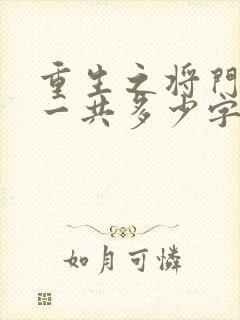 重生之将門
一共多少字
如月可憐